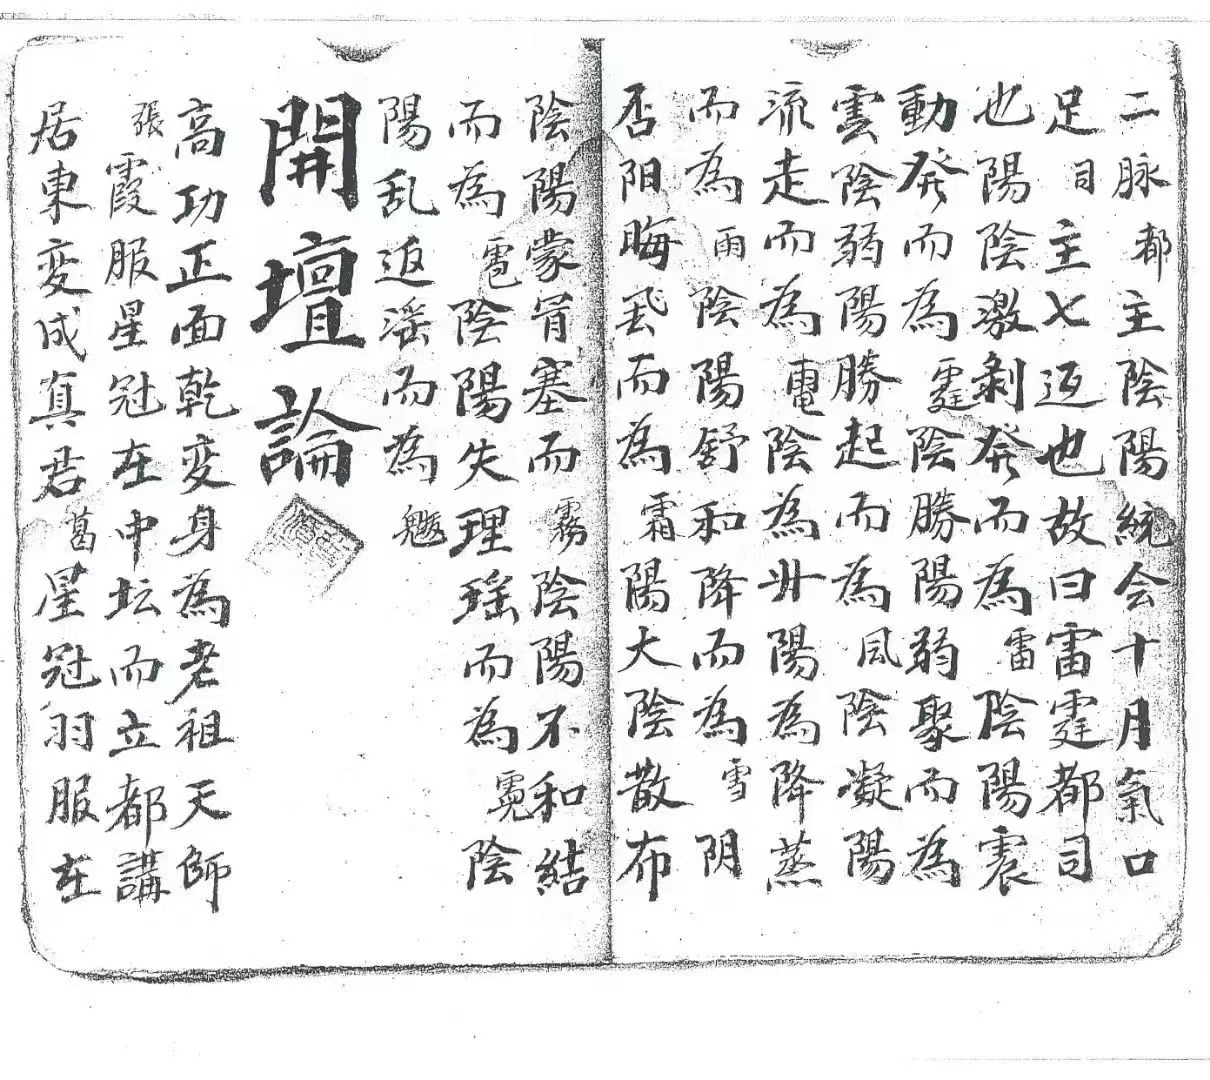 二脉都主陰陽統会十月氣口
足司主七迈也故曰雷霆都司
也陽陰激剥発而為雷陰陽震
動発而為霆陰勝陽弱聚而為
雲陰弱陽勝起而為風陰凝陽
流走而為電陰為升陽為降蒸
而為雨陰陽舒和降而為雪阴
否阳晦飛而為霜陽大陰散布
陰陽蒙塞而霧陰陽不和結
而為雹陰陽失理瑶而為霓陰
陽乱返滛而為魃
開壇論
高功正面乾变身為老祖天師
張霞服星冠在中坛而立都講
居東変成真君葛星冠羽服在